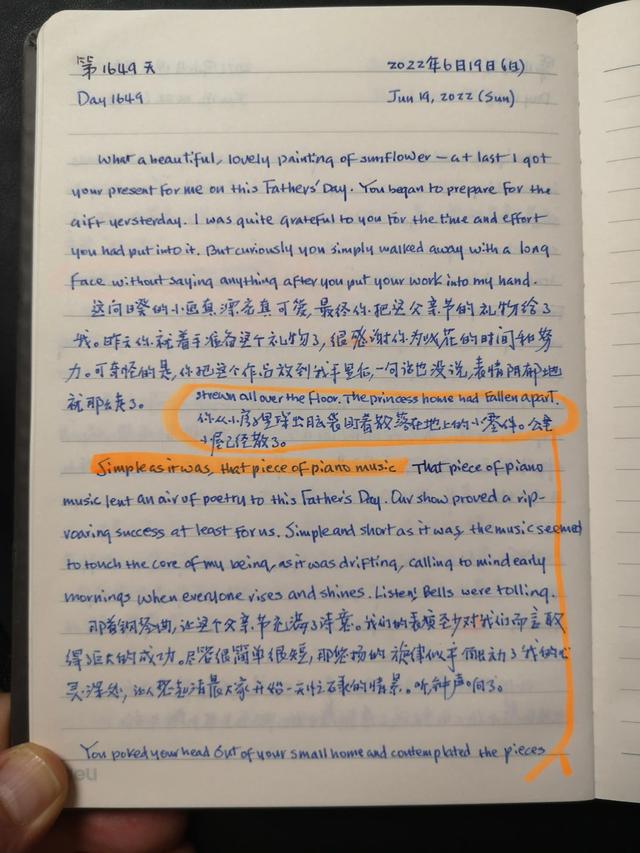 第1649天 2022年6月19日(日)
Day 1649 Jun 19, 2022 (Sun)
What a beautiful, lovely painting of sunflower — at last I got
your present for me on this Fathers' Day. You began to prepare for the
gift yersterday. I was quite grateful to you for the time and effort
you had put into it. But curiously you simply walked away with a long
face without saying anything after you put your work into my hand.
这向日葵的小画真漂亮真可爱,最终你把这父亲节的礼物给了
我。昨天你就着手准备这个礼物了,很感谢你为此花的时间和努
力。可奇怪的是,你把这个作品放到我手里后,一句话也没说,表情阴郁地
就那么走了。
strewn all over the floor. The princess home had fallen apart.
你从小房子里探出脑袋盯着散落在地上的小零件。公主
小屋已经散了。
Simple as it was, that piece of piano music That piece of piano
music lent an air of poetry to this Father's Day. Our show proved a rip-
roaring success at least for us. Simple and short as it was, the music seemed
to touch the core of my being, as it was drifting, calling to mind early
mornings when everyone rises and shines. Listen! Bells were tolling.
那首钢琴曲,让这个父亲节充满了诗意。我们的表演至少对我们而言取
得了巨大的成功。尽管很简单很短,那悠扬的旋律似乎触动了我的心
灵深处,让人想起清晨大家开始一天忙碌的情景。听,钟声响了。
You poked your head out of your small home and contemplated the pieces